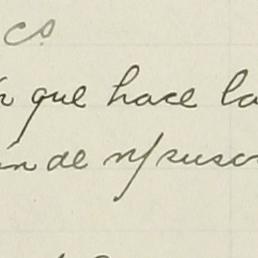 cs.
que hace la
de n/suscr